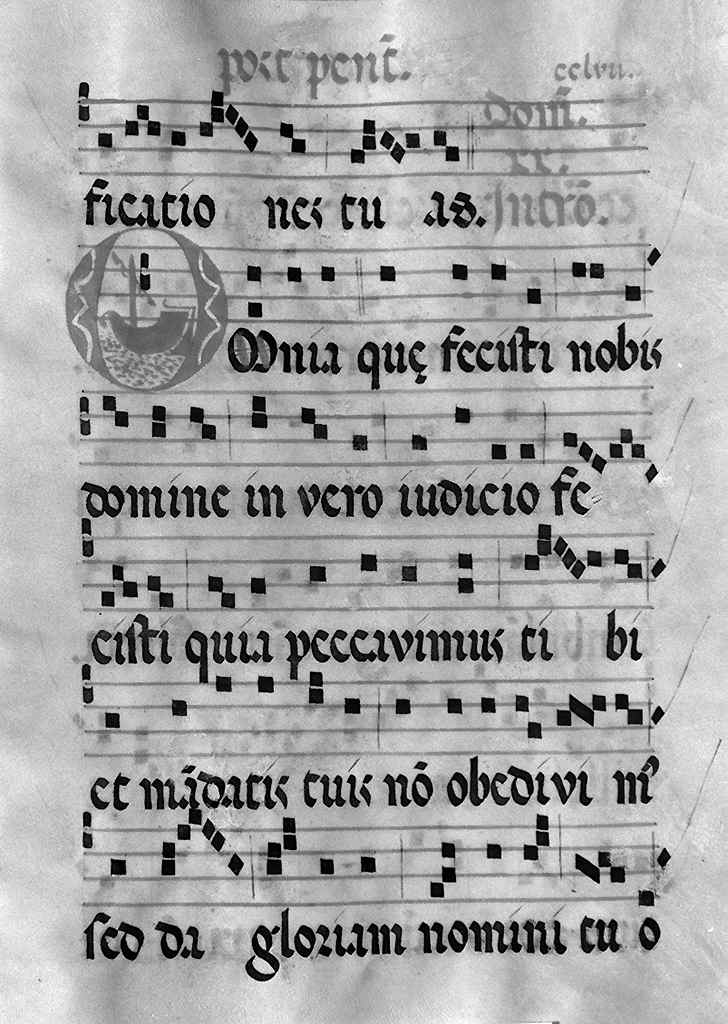 post pent̄.
cclvii.
Dom̄.
xx.
ficatio nes tu as. Introͤ.
Omnia quę fecisti nobis
domine in vero iudicio fe-
cisti quia peccavimus ti bi
et mādatis tuis nō obedivi m᾽
sed da gloriam nomini tu o